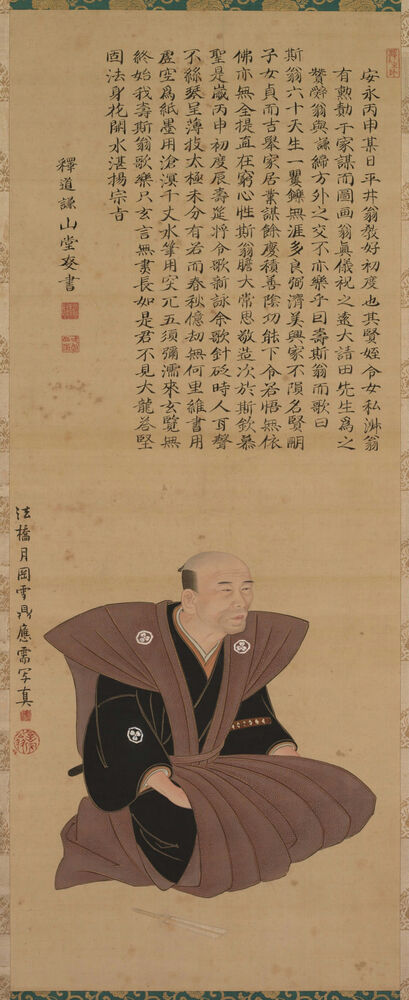 安永丙申某日平井翁敎好初度也其賢姪令女私淑翁
有勲勤于家謀而圖画翁眞儀祝之遠大請田先生爲之
賛辞翁與謙締方外之交不亦樂乎曰壽斯翁而歌曰
斯翁六十天生一矍鑠無涯多良弼濟美興家不隕名賢明
子女貞而吉聚家居業謀餘慶積善陰功能下令若悟無依
佛亦無全提直在窮心性斯翁膽大常思敬造次於斯欽慕
聖是歳丙申初度辰壽筵將令歌新詠余歌針砭時人耳聲
不絲琴呈薄技太極未分有若而春秋億劫無何里維書用
虚空爲紙墨用滄溟千丈水筆用突兀五須弥濡來玄覧無
終始我壽斯翁歌樂只玄言無尽長如是君不見大龍答堅
固法身花開水湛揚宗旨
釋道謙山堂 書
法橋月岡雪鼎應需写真